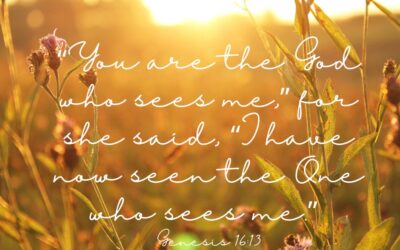 "You are the God
who sees me," for
she said, "I have
now seen the One
who sees me."
Genesis 16:13